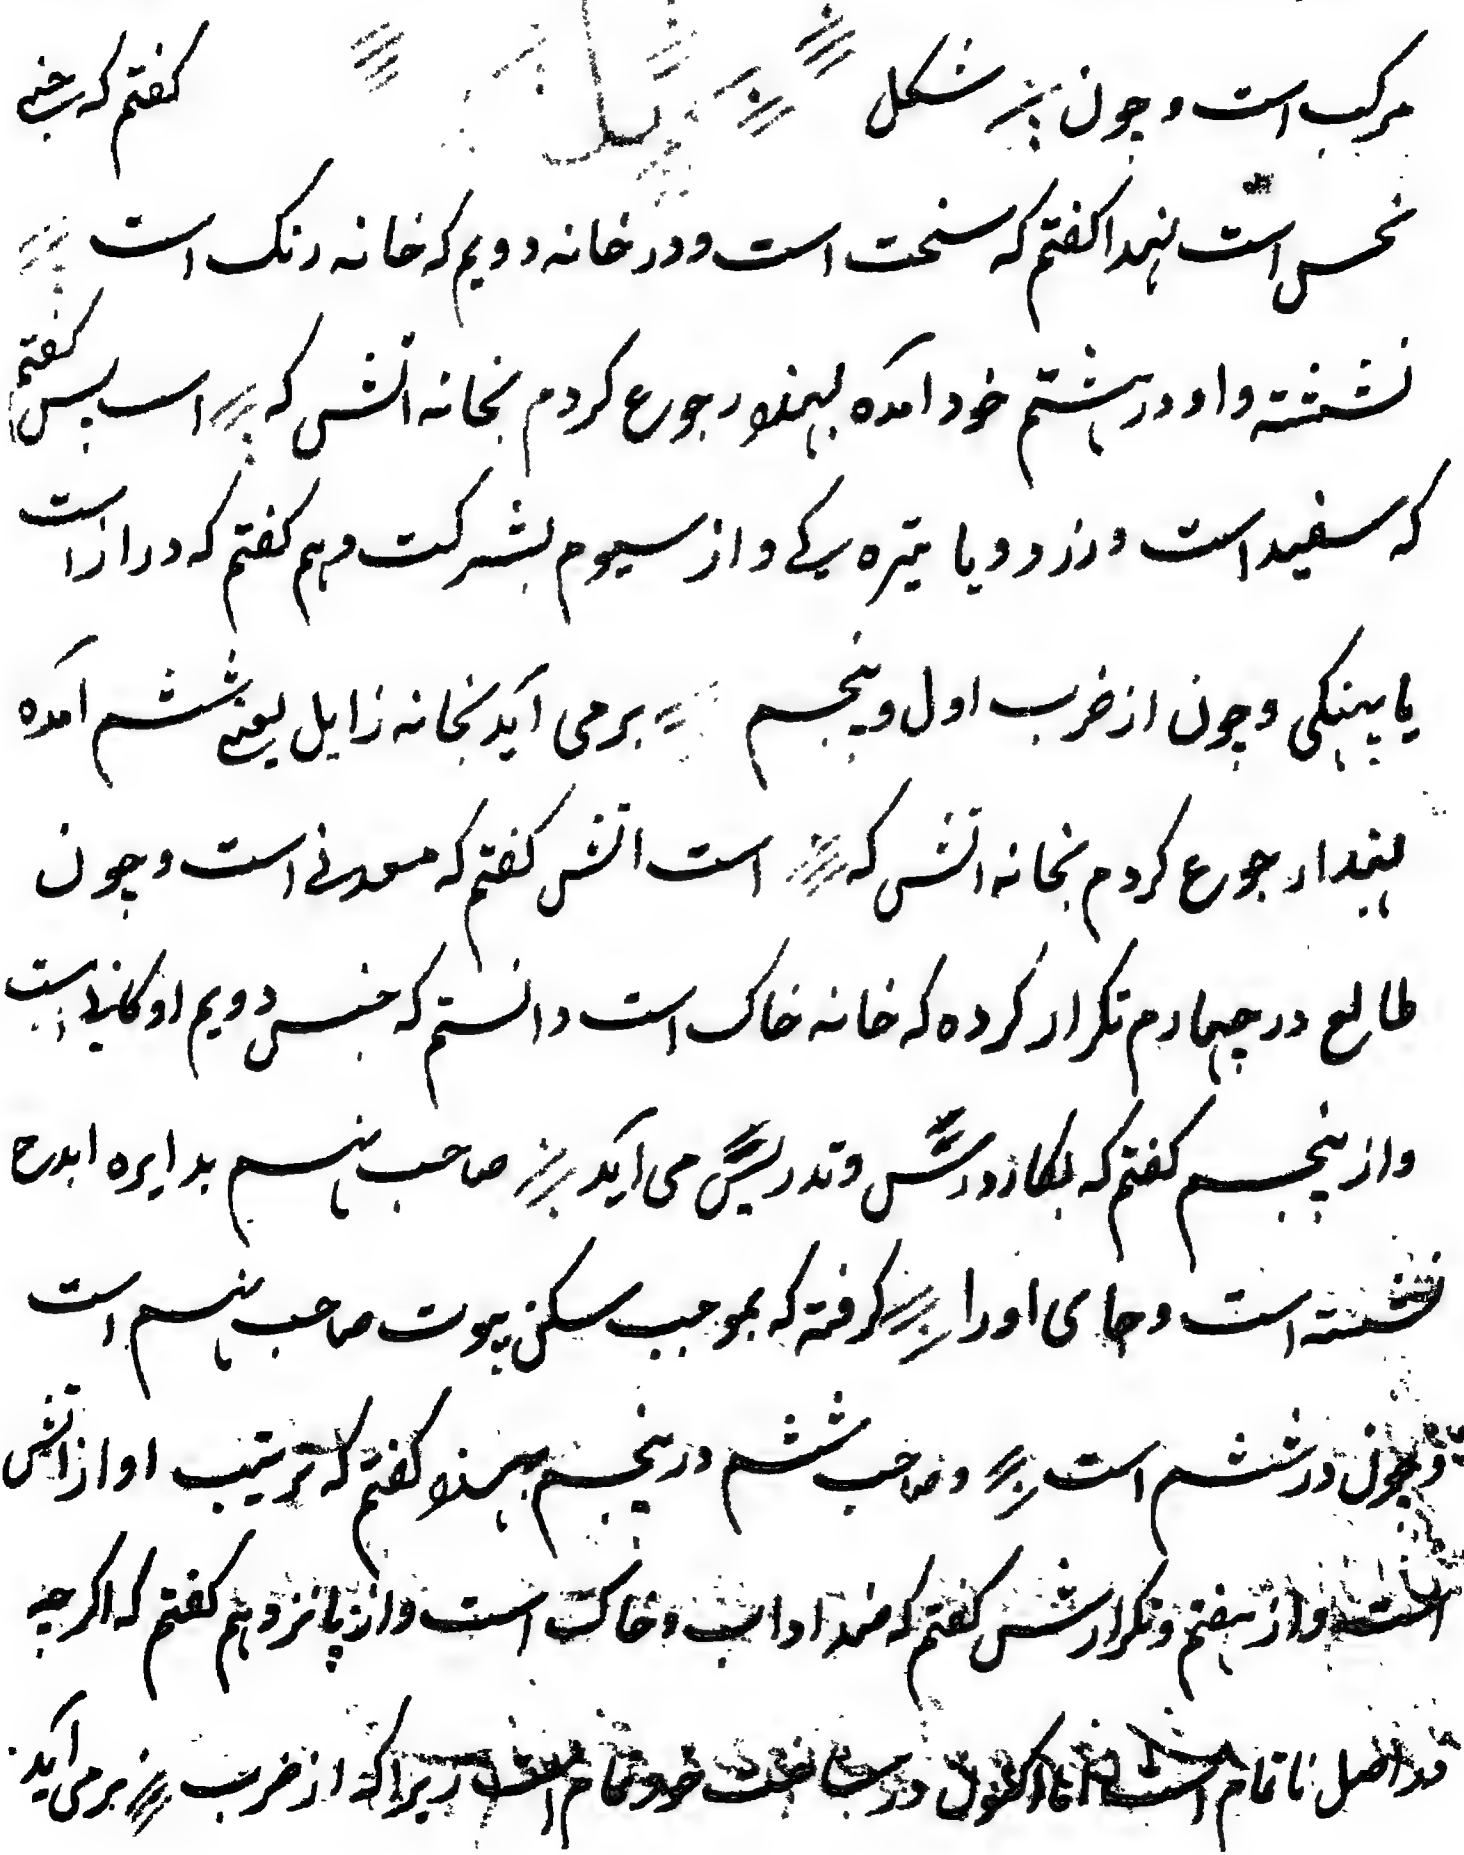 مرکب است و چون شکل گفتم که سختی
نحس است لهذا گفتم که سخت است و در خانه دویم که خانه رنگ است
نشسته و او در هشتم خود آمده لهذا رجوع کردم بخانه آتش که است پس گفتم
که سفید است و زرد و یا تیره یکی و از سیوم بشرکت دهم گفتم که دراز است
یا پهنکی و چون از ضرب اول و پنجم بر می آید بخانه زایل یعنی ششم آمده
لهذا رجوع کردم بخانه آتش که است آتش گفتم که معدنی است و چون
طالع در چهارم تکرار کرده که خانه خاک است دانستم که جنس دویم او کانی است
و از پنجم گفتم که بکار درس و تدریس می آید صاحب نهم بدایره ابدح
نشسته است و جای او را گرفته که بموجب سکن بیوت صاحب نهم است
و چون در ششم است و صاحب ششم در پنجم لهذا گفتم که ترتیب او از آتش
است و از هفتم و تکرارش گفتم که ضد او آب و خاک است و از پانزدهم گفتم که اگر چه
در اصل ناتمام است اما اکنون در ساخت خود تمام است زیرا که از ضرب بر می آید